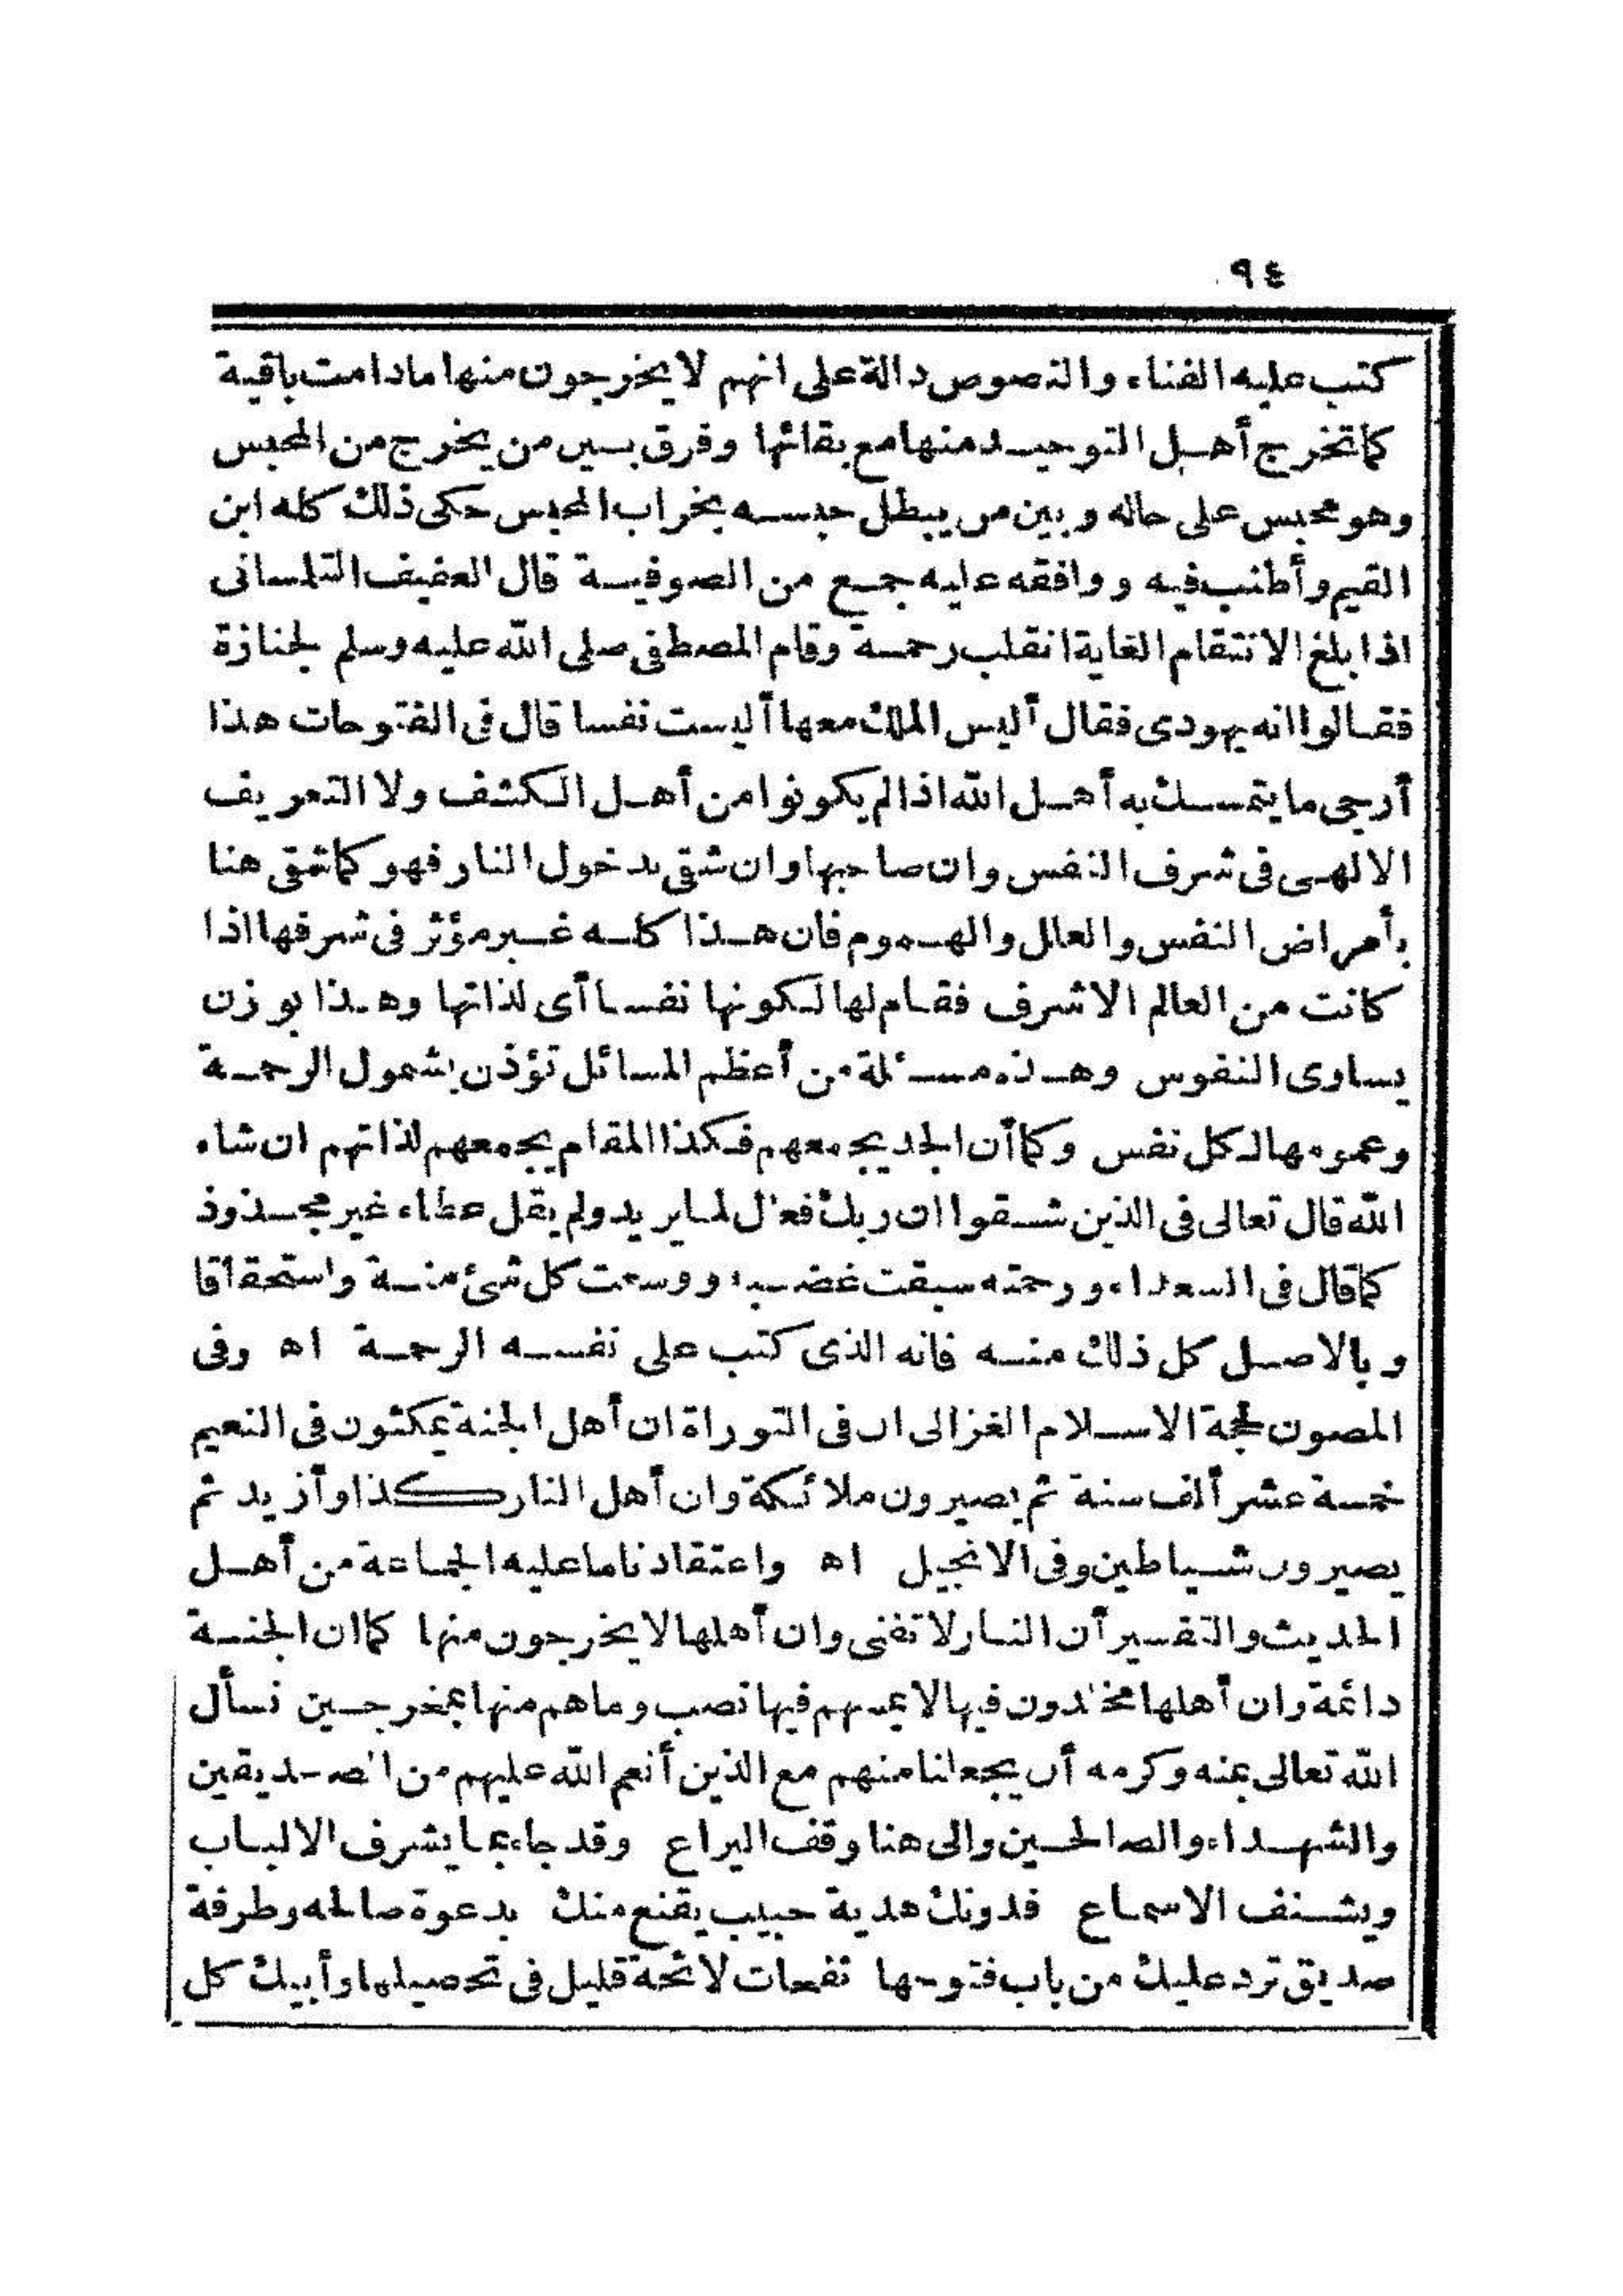 ٩٤
كتب عليه الفناء والنصوص دالة على انهم لا يخرجون منها مادامت باقية
كما تخرج أهل التوحيد منها مع بقائها وفرق بين من يخرج من المحبس
وهو محبس على حاله وبين من يبطل حبسه بخراب المحبس حكى ذلك كله ابن
القيم وأطنب فيه ووافقه عليه جمع من الصوفية قال العفيف التلمسانى
اذا بلغ الانتقام الغاية انقلب رحمة وقام المصطفى صلى الله عليه وسلم لجنازة
فقالوا انه يهودى فقال أليس الملك معها أليست نفسا قال فى الفتوحات هذا
أرجى ما يتمسك به أهل الله اذا لم يكونوا من أهل الكشف ولا التعريف
الالهى فى شرف النفس وان صاحبها وان شقى بدخول النار فهو كما شقى هنا
بأمراض النفس والعلل والهموم فان هذا كله غير مؤثر فى شرفها اذا
كانت من العالم الاشرف فقام لها لكونها نفسا أى لذاتها وهذا بوزن
يساوى النفوس وهذه مسئلة من أعظم المسائل تؤذن بشمول الرحمة
وعمومها لكل نفس وكما أن الجد يجمعهم فكذا المقام يجمعهم لذاتهم ان شاء
الله قال تعالى فى الذين شقوا ان ربك فعال لما يريد ولم يقل عطاء غير مجذوذ
كما قال فى السعداء ورحمته سبقت غضبه ووسعت كل شئ منة واستحقاقا
وبالاصل كل ذلك منه فانه الذى كتب على نفسه الرحمة اه وفى
المصون لحجة الاسلام الغزالى ان فى التوراة ان أهل الجنة يمكثون فى النعيم
خمسة عشر ألف سنة ثم يصيرون ملائكة وان أهل النار كذا وأزيد ثم
يصيرون شياطين وفى الانجيل اه واعتقادنا ما عليه الجماعة من أهل
الحديث والتفسير أن النار لا تفنى وان أهلها لا يخرجون منها كما ان الجنة
دائمة وان أهلها مخلدون فيها لا يمسهم فيها نصب وما هم منها بمخرجين نسأل
الله تعالى بمنه وكرمه أن يجعلنا منهم مع الذين أنعم الله عليهم من الصديقين
والشهداء والصالحين والى هنا وقف اليراع وقد جاء بما يشرف الالباب
ويشنف الاسماع فدونك هدية حبيب يقنع منك بدعوة صالحه وطرفة
صديق ترد عليك من باب فتوحها نفحات لائحة قليل فى تحصيلها وأبيك كل